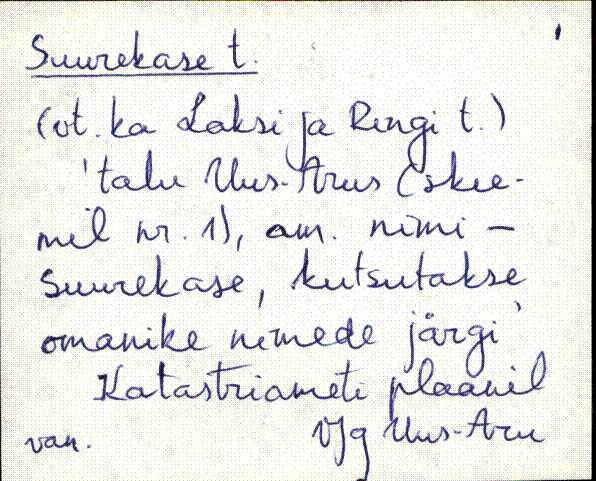 Suurekase t.
(vt. ka Laksi ja Rengi t.)
'talu Uus-Arus (skee-
mil nr. 1), am. nimi –
Suurekase, kutsutakse
omanike nimede järgi'
Katastriameti plaanil
van. Vjg Uus-Aru